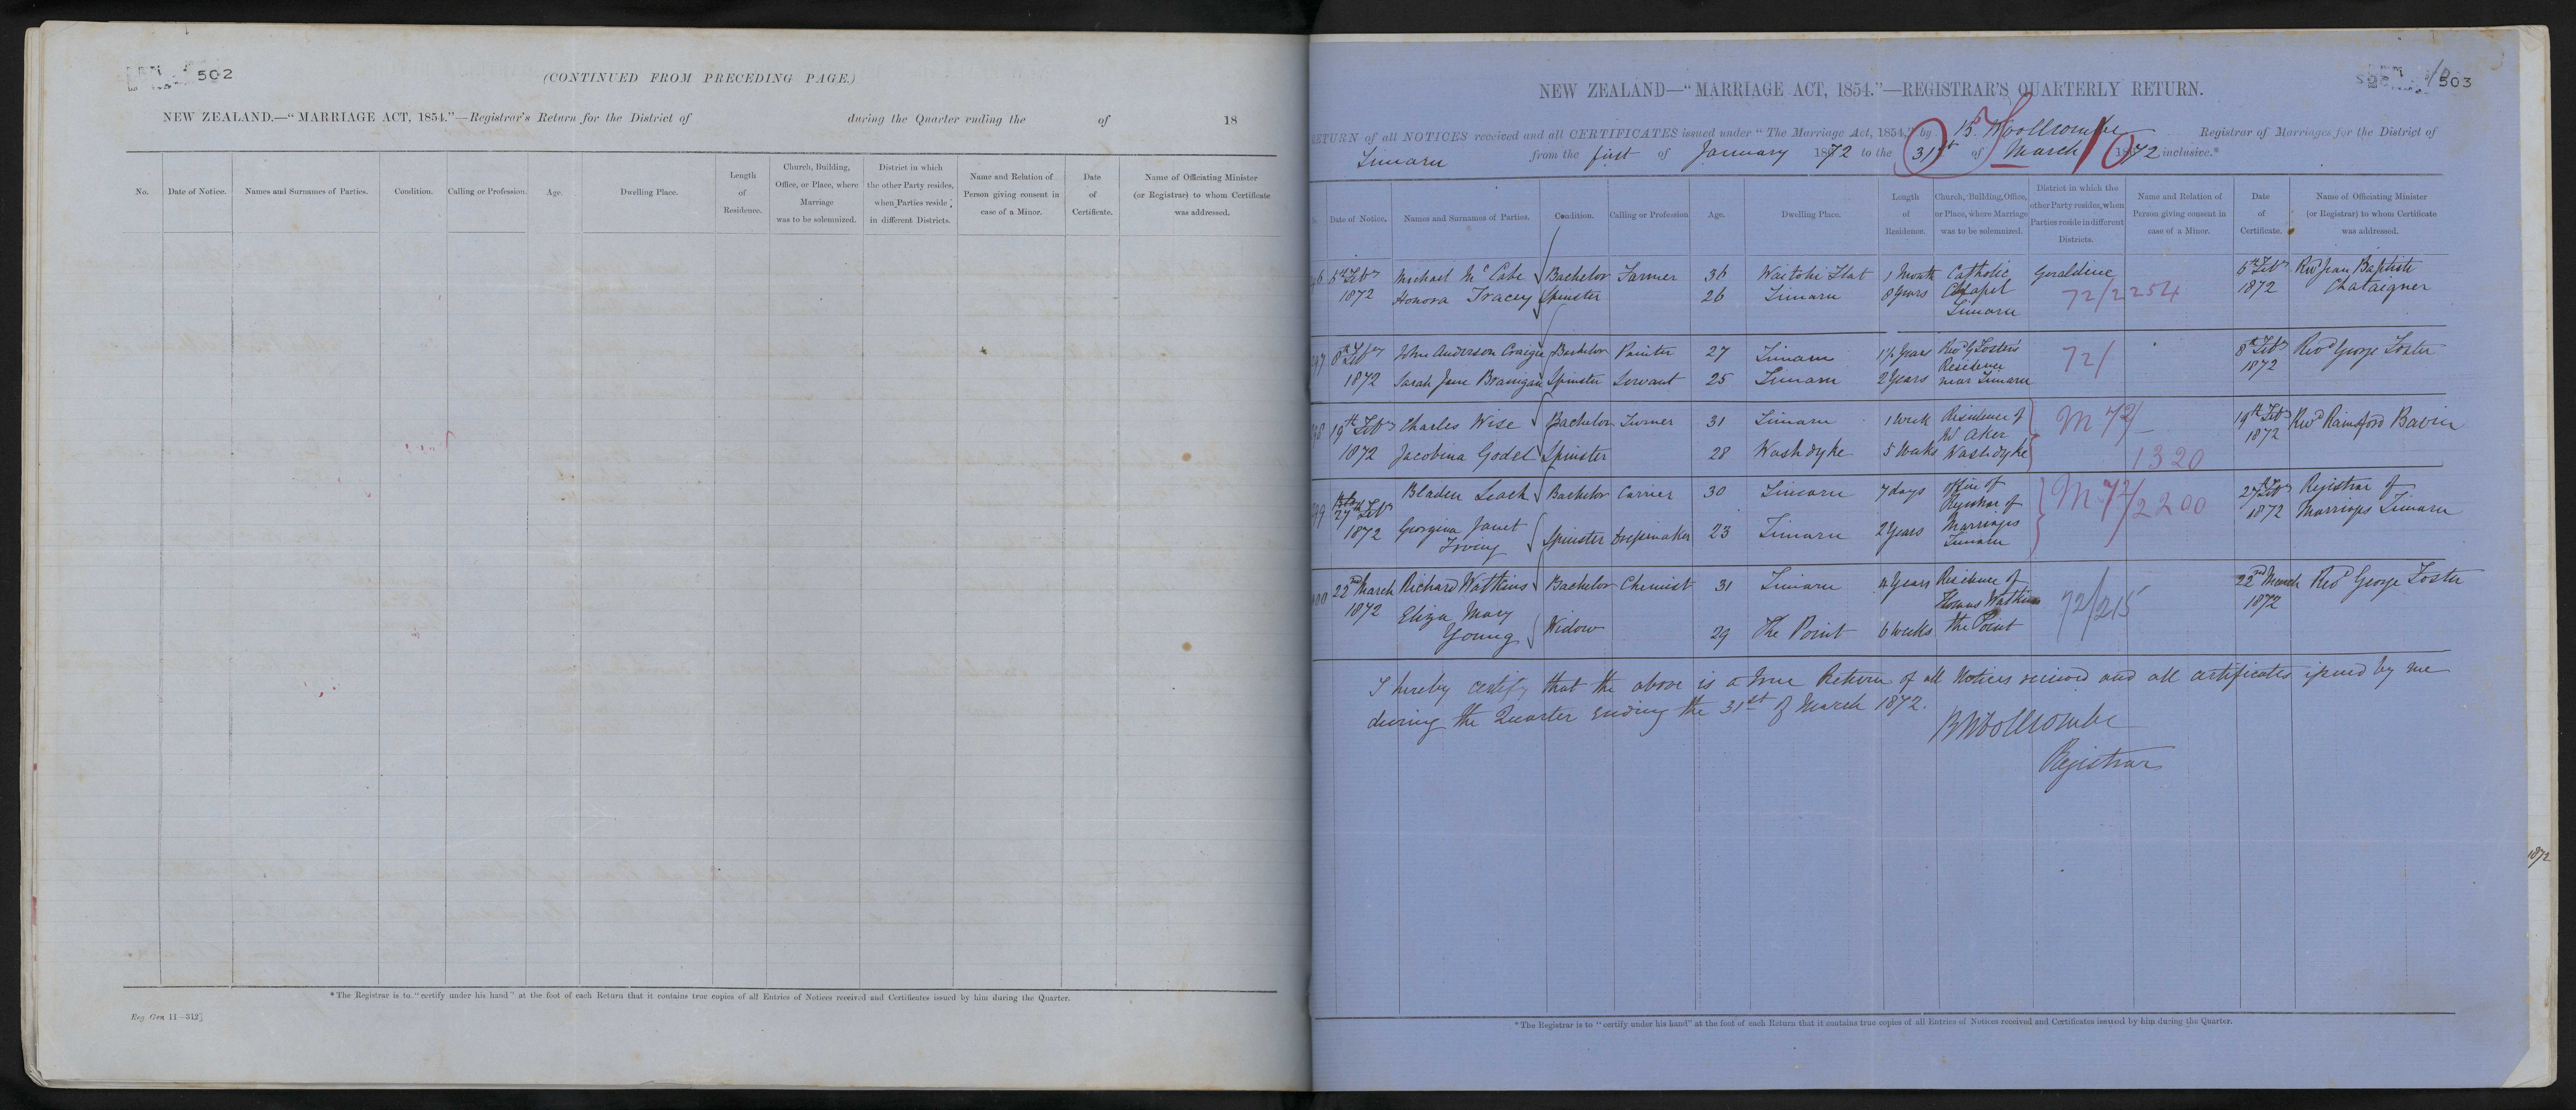 502
(CONTINUED FROM PRECEDING PAGE.)
NEW ZEALAND.—"MARRIAGE ACT, 1854."—Registrar's Return for the District of during the Quarter ending the of 18
No. Date of Notice. Names and Surnames of Parties. Condition. Calling or Profession. Age. Dwelling Place. Length of Residence. Church, Building, Office, or Place, where Marriage was to be solemnized. District in which the other Party resides, when Parties reside in different Districts. Name and Relation of Person giving consent in case of a Minor. Date of Certificate. Name of Officiating Minister (or Registrar) to whom Certificate was addressed.
* The Registrar is to "certify under his hand" at the foot of each Return that it contains true copies of all Entries of Notices received and Certificates issued by him during the Quarter.
Reg. Gen 11—312]
503
NEW ZEALAND—"MARRIAGE ACT, 1854."—REGISTRAR'S QUARTERLY RETURN.
RETURN of all NOTICES received and all CERTIFICATES issued under "The Marriage Act, 1854," by B. Woollcombe Registrar of Marriages for the District of
Timaru from the first of January 1872 to the 31st of March 1872 inclusive.*
Date of Notice. Names and Surnames of Parties. Condition. Calling or Profession Age. Dwelling Place. Length of Residence. Church, Building, Office, or Place, where Marriage was to be solemnized. District in which the other Party resides, when Parties reside in different Districts. Name and Relation of Person giving consent in case of a Minor. Date of Certificate. Name of Officiating Minister (or Registrar) to whom Certificate was addressed.
6th Feby Michael McCabe Bachelor Farmer 36 Waitohi Flat 1 Month Catholic Geraldine 6th Feby Revd Jean Baptiste
1872 Honora Tracey Spinster 26 Timaru 8 Years Chapel 72/2254 1872 Chataigner
Timaru
8th Feby John Anderson Craigie Bachelor Painter 27 Timaru 1½ Years Revd G Foster's 72/ 8th Feby Revd George Foster
Residence 1872
1872 Sarah Jane Brannigan Spinster Servant 25 Timaru 2 Years near Timaru
19th Feby Charles Wise Bachelor Turner 31 Timaru 1 Week Residence of M 72/ 19th Feby Revd Rainsford Bavin
W Aker 1872
1872 Jacobina Godel Spinster 28 Washdyke 5 Weeks Washdyke 1320
27th Feby Bladen Leach Bachelor Carrier 30 Timaru 7 days Office of M 72/2200 27th Feby Registrar of
Registrar of 1872 Marriages Timaru
1872 Georgina Janet Marriages
Irving Spinster Dressmaker 23 Timaru 2 Years Timaru
22nd March Richard Watkins Bachelor Chemist 31 Timaru 4 Years Residence of 72/215 22nd March Revd George Foster
1872 Eliza Mary Thomas Watkins 1872
Young Widow 29 The Point 6 weeks The Point
I hereby certify that the above is a true Return of all Notices received and all certificates issued by me
during the Quarter ending the 31st of March 1872.
B Woollcombe
Registrar
1872
* The Registrar is to "certify under his hand" at the foot of each Return that it contains true copies of all Entries of Notices received and Certificates issued by him during the Quarter.